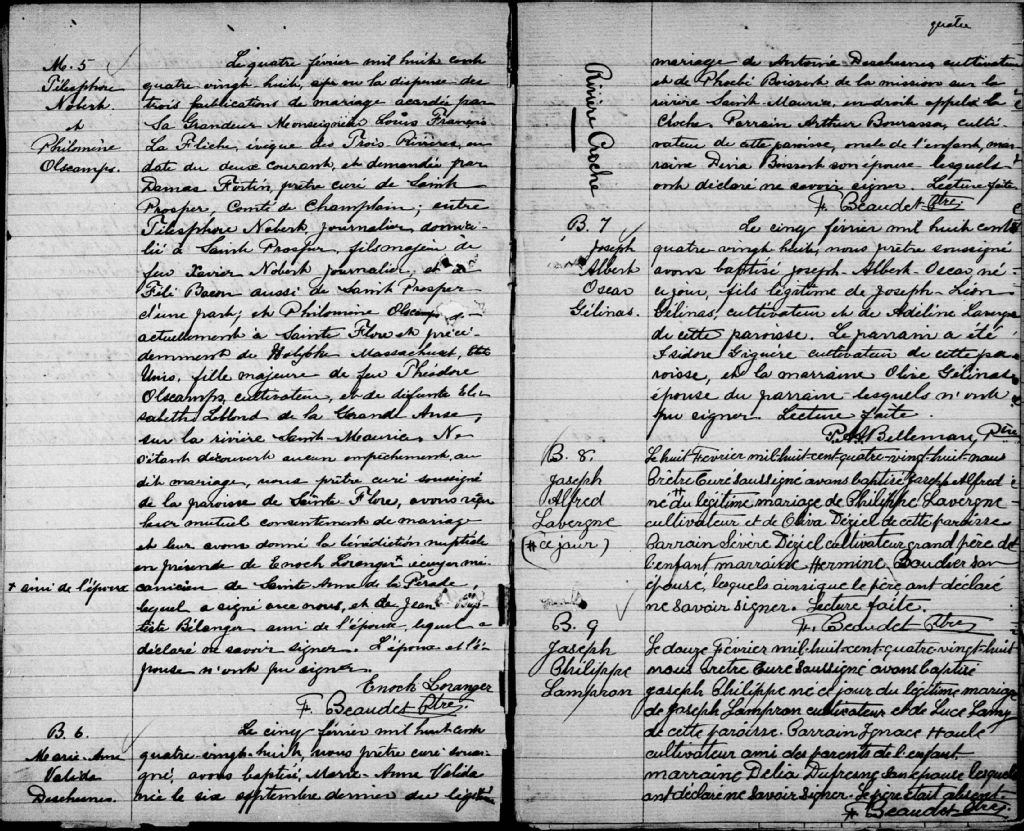 M. 5
Télesphore
Nobert
et
Philomène
Olscamps.
Le quatre février mil huit cent
quatre vingt huit, après ou la dispense des
trois publications de mariage acordée par
Sa Grandeur Monseigneur Louis François
La Flèche, évèque des Trois Rivières, en
date du deux courant, et demandée par
Damas Fortin, prêtre curé de Saint
Prosper, Comté de Champlain; entre
Télesphore Nobert, journalier, domici-
lié à Saint Prosper, fils majeur de
feu Xavier Nobert journalier, et de
Féli Bacon aussi de Saint Prosper
d'une part; et Philomène Olscamps
actuellement à Sainte Flore et précé-
demment de Holyoke Massachuset, Etats
Unis, fille majeure de feu Théodore
Olscamps, cultivateur, et de défunte Eli-
sabeth Leblond de la Grande Anse,
sur la rivière Saint-Maurice, Ne
s'étant découvert aucun empêchement au
dit mariage, nous prêtre curé soussigné
de la paroisse de Sainte Flore, avons reçu
leur mutuel consentement de mariage
et leur avons donné la bénédiction nuptiale
en présence de Enoch Loranger + écuyer mé-
canicien de Sainte Anne de la Pérade,
lequel a signé avec nous, et de Jean Bap-
tiste Bélanger ami de l'époux, lequel a
déclaré ne savoir signer. L'époux et l'é-
pouse n'ont pu signer.
+ ami de l'épouse
Enoch Loranger
F. Beaudet Ptre.
B. 6.
Marie-Anne
Valida
Deschesnes.
Le cinq février mil huit cent
quatre vingt-huit, nous prêtre curé sous-
igné, avons baptisé, Marie-Anne Valida
née le six septembre dernier du légiti
quatre
Rivière Croche
mariage de Antoine Deschesnes cultivateur
et de Phoebé Boisvert de la mission sur la
rivière Saint-Maurice, endroit appelé la
Croche. Parrain Arthur Bourassa, culti-
vateur de cette paroisse, oncle de l'enfant, mar-
raine Divia Boisvert son épouse lesquels
ont déclaré ne savoir signer. Lecture faite.
F. Beaudet Ptre.
B. 7
Joseph
Albert
Oscar
Gélinas.
Le cinq février mil huit cent
quatre-vingt huit, nous prêtre soussigné
avons baptisé Joseph-Albert-Oscar, né
ce jour, fils légitime de Joseph-Léon
Gélinas, cultivateur et de Adéline Lavergne
de cette paroisse. Le parrain a été
Isidore Giguère cultivateur de cette pa-
roisse, et la marraine Olive Gélinas
épouse du parrain lesquels n'ont
pu signer. Lecture faite.
Bellemare, Ptre
B. 8.
Joseph
Alfred
Lavergne
(# ce jour)
Le huit Février mil-huit-cent-quatre-vingt-huit nous
Prêtre Curé Soussigné avons baptisé Joseph Alfred
né # du légitime mariage de Philippe Lavergne
cultivateur et de Oliva Déziel de cette paroisse
Parrain Sévère Déziel cultivateur grand père de
l'enfant marraine Hermine Beaudier son
épouse, lesquels ainsi que le père, ont déclaré
ne savoir signer. Lecture faite.
F. Beaudet Ptre
B. 9
Joseph
Philippe
Lampron
Le douze Février mil-huit-cent-quatre-vingt-huit
nous Prêtre Curé Soussigné avons baptisé
Joseph Philippe né ce jour du légitime mariage
de Joseph Lampron cultivateur et de Luce Lamy
de cette paroisse. Parrain Ignace Houle
cultivateur ami des parents de l'enfant
marraine Délia Dufresne son épouse lesquels
ont déclaré ne savoir signer. Le père était absent.
F. Beaudet Ptre.